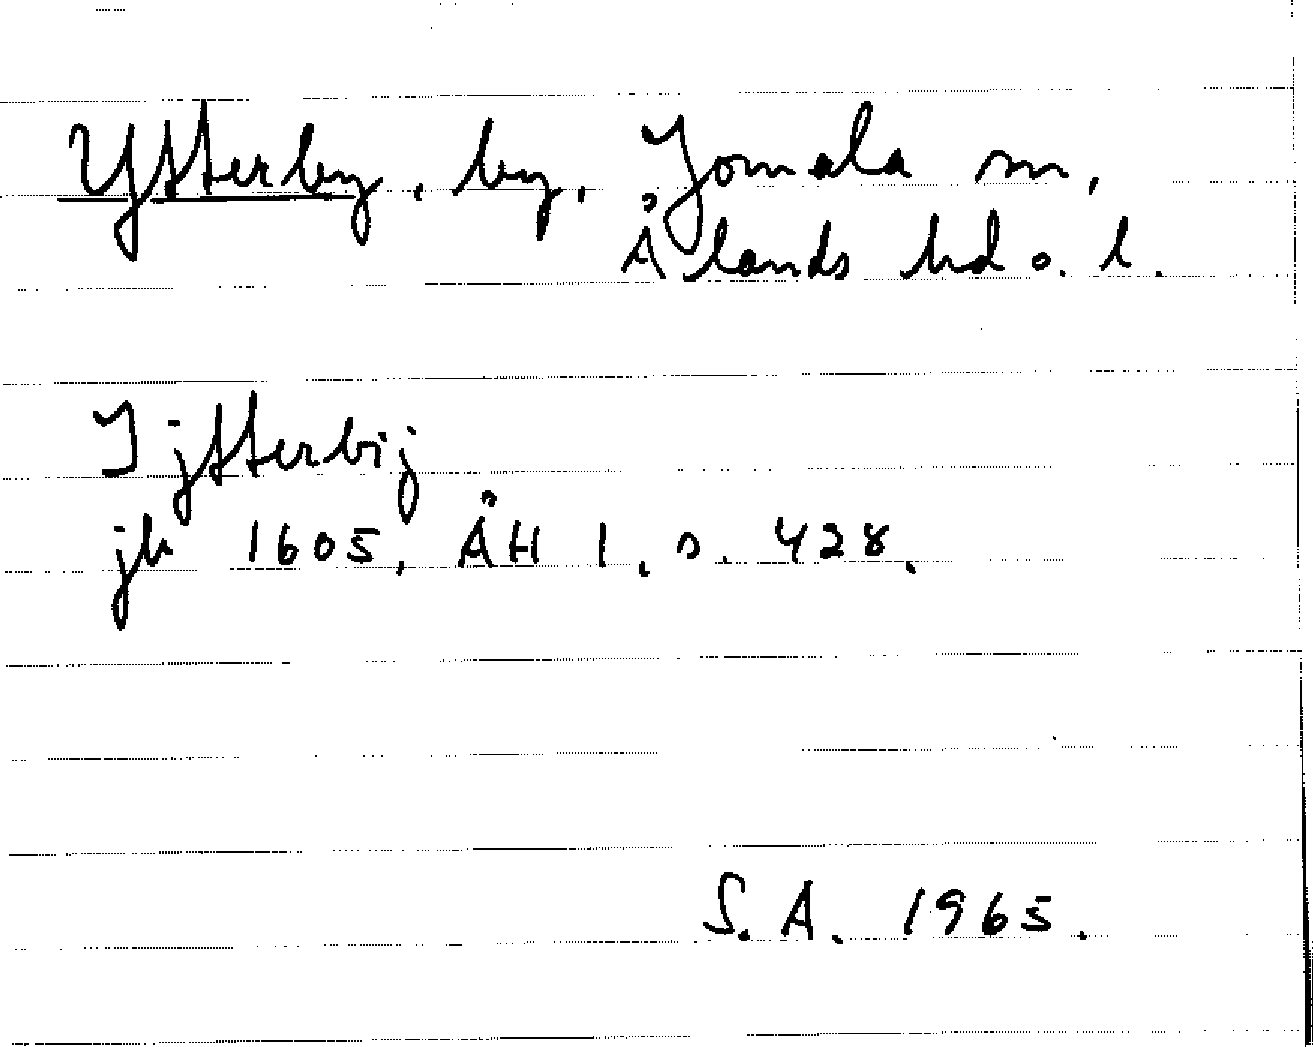 Ytterby, by, Jomala sn,
Ålands hd o. l.
I ÿtterbij
jb 1605, ÅH I, s. 428.
S.A. 1965.